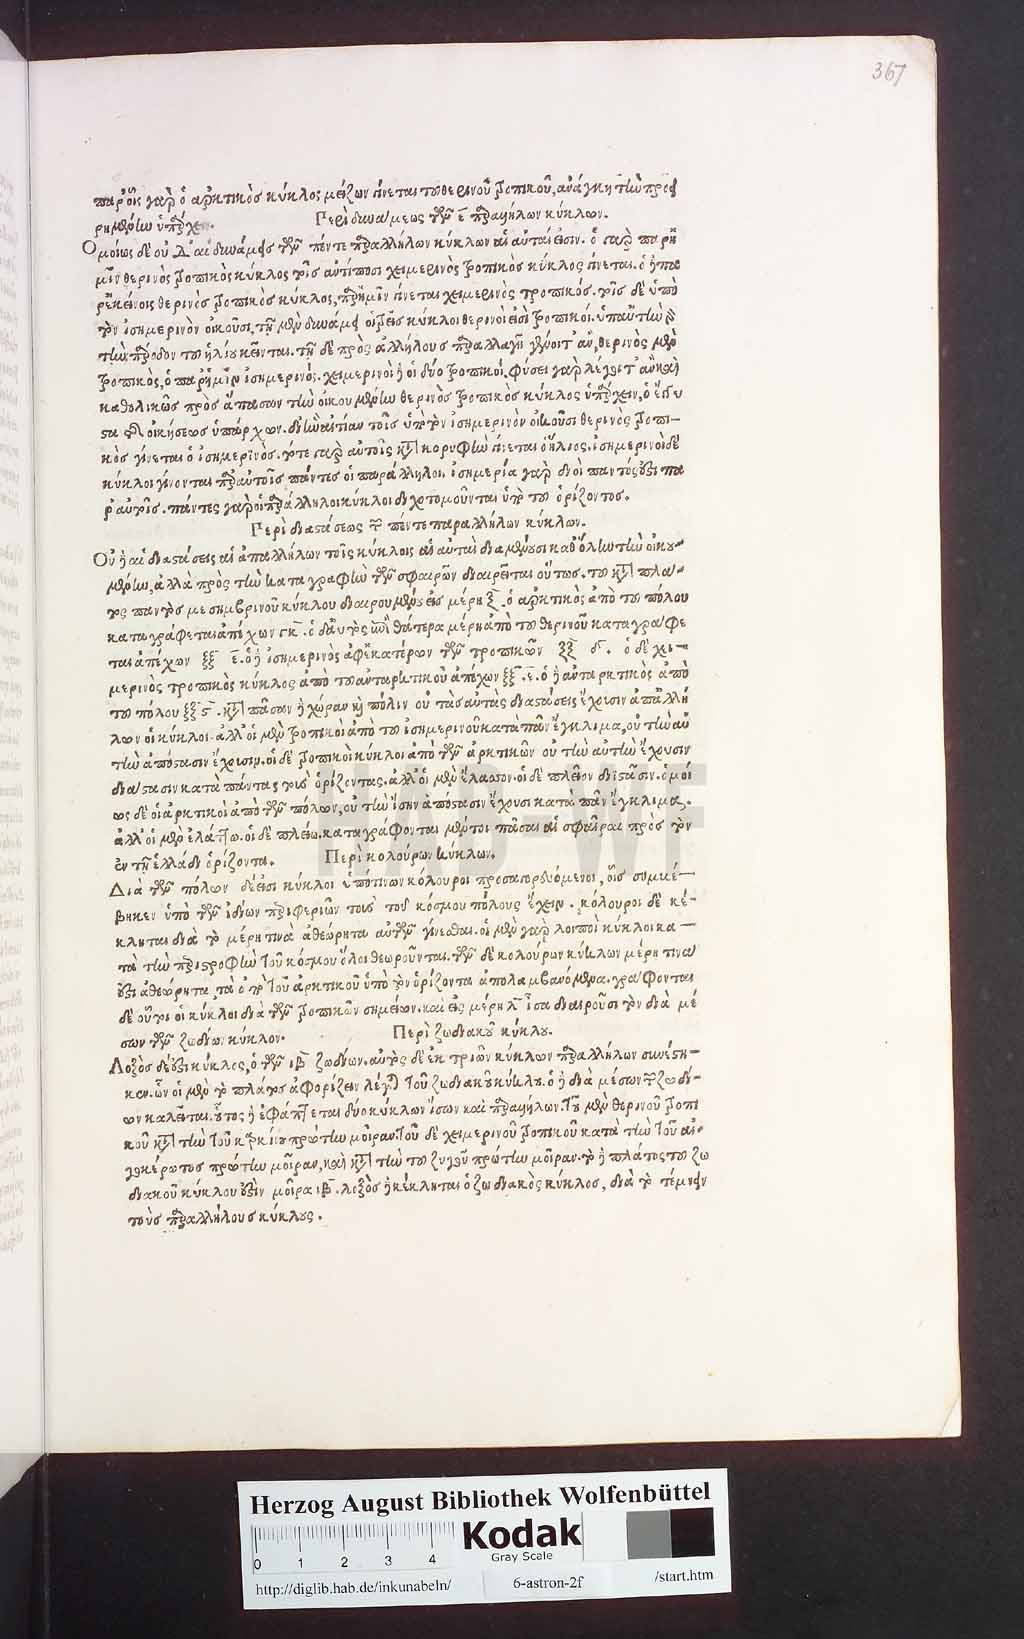 367
παρ' οἷς γὰρ ὁ ἀρκτικὸς κύκλος μείζων γίνεται τοῦ θερινοῦ τροπικοῦ, ἀνάγκη τὴν προει
ρημένην ὑπάρχειν.
Περὶ δυνάμεως τῶν ε̄ παραλλήλων κύκλων.
Ὁμοίως δὲ οὐδ' αἱ δυνάμεις τῶν πέντε παραλλήλων κύκλων αἱ αὐταί εἰσιν. ὁ γὰρ παρ' ἡ
μῖν θερινὸς τροπικὸς κύκλος τοῖς ἀντίποσι χειμερινὸς τροπικὸς κύκλος γίνεται. ὁ δὲ πα
ρ' ἐκείνοις θερινὸς τροπικὸς κύκλος, παρ' ἡμῖν γίνεται χειμερινὸς τροπικός. τοῖς δὲ ὑπὸ
τὸν ἰσημερινὸν οἰκοῦσι, τῇ μὲν δυνάμει οἱ τρεῖς κύκλοι θερινοί εἰσι τροπικοί. ὑπ' αὐτὴν γὰρ
τὴν πάροδον τοῦ ἡλίου κεῖνται. τῇ δὲ πρὸς ἀλλήλους παραλλαγῇ γένοιτ' ἂν, θερινὸς μὲν
τροπικὸς, ὁ παρ' ἡμῖν ἰσημερινός. χειμερινοὶ δὲ οἱ δύο τροπικοί. φύσει γὰρ λέγοιτ' ἂν καὶ
καθολικῶς πρὸς ἅπασαν τὴν οἰκουμένην θερινὸς τροπικὸς κύκλος ὑπάρχειν, ὁ ἔγγι
στα τῆς οἰκήσεως ὑπάρχων. δι' ἣν αἰτίαν τοῖς ὑπὸ τὸν ἰσημερινὸν οἰκοῦσι θερινὸς τροπι-
κὸς γίνεται ὁ ἰσημερινός. τότε γὰρ αὐτοῖς κατὰ κορυφὴν γίνεται ὁ ἥλιος. ἰσημερινοὶ δὲ
κύκλοι γίνονται παρ' αὐτοῖς πάντες οἱ παράλληλοι. ἰσημερία γὰρ διὰ παντός ἐστι πα
ρ' αὐτοῖς. πάντες γὰρ οἱ παράλληλοι κύκλοι διχοτομοῦνται ὑπὸ τοῦ ὁρίζοντος.
Περὶ διαστάσεως τῶν πέντε παραλλήλων κύκλων.
Οὐ δὲ αἱ διαστάσεις αἱ ἀπ' ἀλλήλων τοῖς κύκλοις αἱ αὐταὶ διαμένουσι καθ' ὅλην τὴν οἰκου-
μένην, ἀλλὰ πρὸς τὴν καταγραφὴν τῶν σφαιρῶν διαιρεῖται οὕτως. τοῦ κατὰ πλά-
τος παντὸς μεσημβρινοῦ κύκλου διαιρουμένου εἰς μέρη ξ̄. ὁ ἀρκτικὸς ἀπὸ τοῦ πόλου
καταγράφεται ἀπέχων ς̄. ὁ δ' αὐτὸς ἐπὶ θάτερα μέρη ἀπὸ τοῦ θερινοῦ καταγράφε
ται ἀπέχων ξξ ε̄. ὁ δὲ ἰσημερινὸς ἀφ' ἑκατέρων τῶν τροπικῶν ξξ δ̄. ὁ δὲ χει-
μερινὸς τροπικὸς κύκλος ἀπὸ τοῦ ἀνταρκτικοῦ ἀπέχων ξξ ε̄. ὁ δὲ ἀνταρκτικὸς ἀπὸ
τοῦ πόλου ξξ ς̄. κατὰ πᾶσαν δὲ χώραν καὶ πόλιν οὐ τὰς αὐτὰς διαστάσεις ἔχουσιν ἀπ' ἀλλή
λων οἱ κύκλοι. ἀλλ' οἱ μὲν τροπικοὶ ἀπὸ τοῦ ἰσημερινοῦ κατὰ πᾶν ἔγκλιμα, οὐ τὴν αὐ
τὴν ἀπόστασιν ἔχουσιν. οἱ δὲ τροπικοὶ κύκλοι ἀπὸ τῶν ἀρκτικῶν οὐ τὴν αὐτὴν ἔχουσιν
διάστασιν κατὰ πάντας τοὺς ὁρίζοντας. ἀλλ' οἱ μὲν ἔλαττον. οἱ δὲ πλεῖον διιστᾶσιν. ὁμοί
ως δὲ οἱ ἀρκτικοὶ ἀπὸ τῶν πόλων, οὐ τὴν ἴσην ἀπόστασιν ἔχουσι κατὰ πᾶν ἔγκλιμα.
ἀλλ' οἱ μὲν ἐλάττω. οἱ δὲ πλείω. καταγράφονται μέντοι πᾶσαι αἱ σφαῖραι πρὸς τὸν
ἐν τῇ ἑλλάδι ὁρίζοντα.
Περὶ κολούρων κύκλων.
Διὰ τῶν πόλων δέ εἰσι κύκλοι ὑπό τινων κόλουροι προσαγορευόμενοι, οἷς συμβέ-
βηκεν ὑπὸ τῶν ἰδίων περιφερειῶν τοὺς τοῦ κόσμου πόλους ἔχειν. κόλουροι δὲ κέ-
κληνται διὰ τὸ μέρη τινὰ ἀθεώρητα αὐτῶν γίνεσθαι. οἱ μὲν γὰρ λοιποὶ κύκλοι κα-
τὰ τὴν περιστροφὴν τοῦ κόσμου ὅλοι θεωροῦνται. τῶν δὲ κολούρων κύκλων μέρη τινά
ἐστι ἀθεώρητα, τὰ ὑπὸ τοῦ ἀρκτικοῦ ὑπὸ τὸν ὁρίζοντα ἀπολαμβανόμενα. γράφονται
δὲ οὗτοι οἱ κύκλοι διὰ τῶν τροπικῶν σημείων. καὶ εἰς μέρη λ̄ ἴσα διαιροῦσι τὸν διὰ μέ
σων τῶν ζωδίων κύκλον.
Περὶ ζωδιακοῦ κύκλου.
Λοξὸς δέ ἐστι κύκλος, ὁ τῶν ιβ̄ ζωδίων. αὐτὸς δὲ ἐκ τριῶν κύκλων παραλλήλων συνέστη-
κεν. ὧν οἱ μὲν τὸ πλάτος ἀφορίζειν λέγονται τοῦ ζωδιακοῦ κύκλου. ὁ δὲ διὰ μέσων τῶν ζωδί-
ων καλεῖται. οὗτος δὲ ἐφάπτεται δύο κύκλων ἴσων καὶ παραλλήλων. τοῦ μὲν θερινοῦ τροπι
κοῦ κατὰ τὴν τοῦ καρκίνου πρώτην μοῖραν. τοῦ δὲ χειμερινοῦ τροπικοῦ κατὰ τὴν τοῦ αἰ-
γόκερωτος πρώτην μοῖραν, καὶ κατὰ τὴν τοῦ ζυγοῦ πρώτην μοῖραν. τὸ δὲ πλάτος τοῦ ζω
διακοῦ κύκλου ἐστὶν μοῖραι ιβ̄. λοξὸς δὲ κέκληται ὁ ζωδιακὸς κύκλος, διὰ τὸ τέμνειν
τοὺς παραλλήλους κύκλους.
HAB-WF
Herzog August Bibliothek Wolfenbüttel
0 1 2 3 4
Kodak
Gray Scale
http://diglib.hab.de/inkunabeln/ 6-astron-2f /start.htm